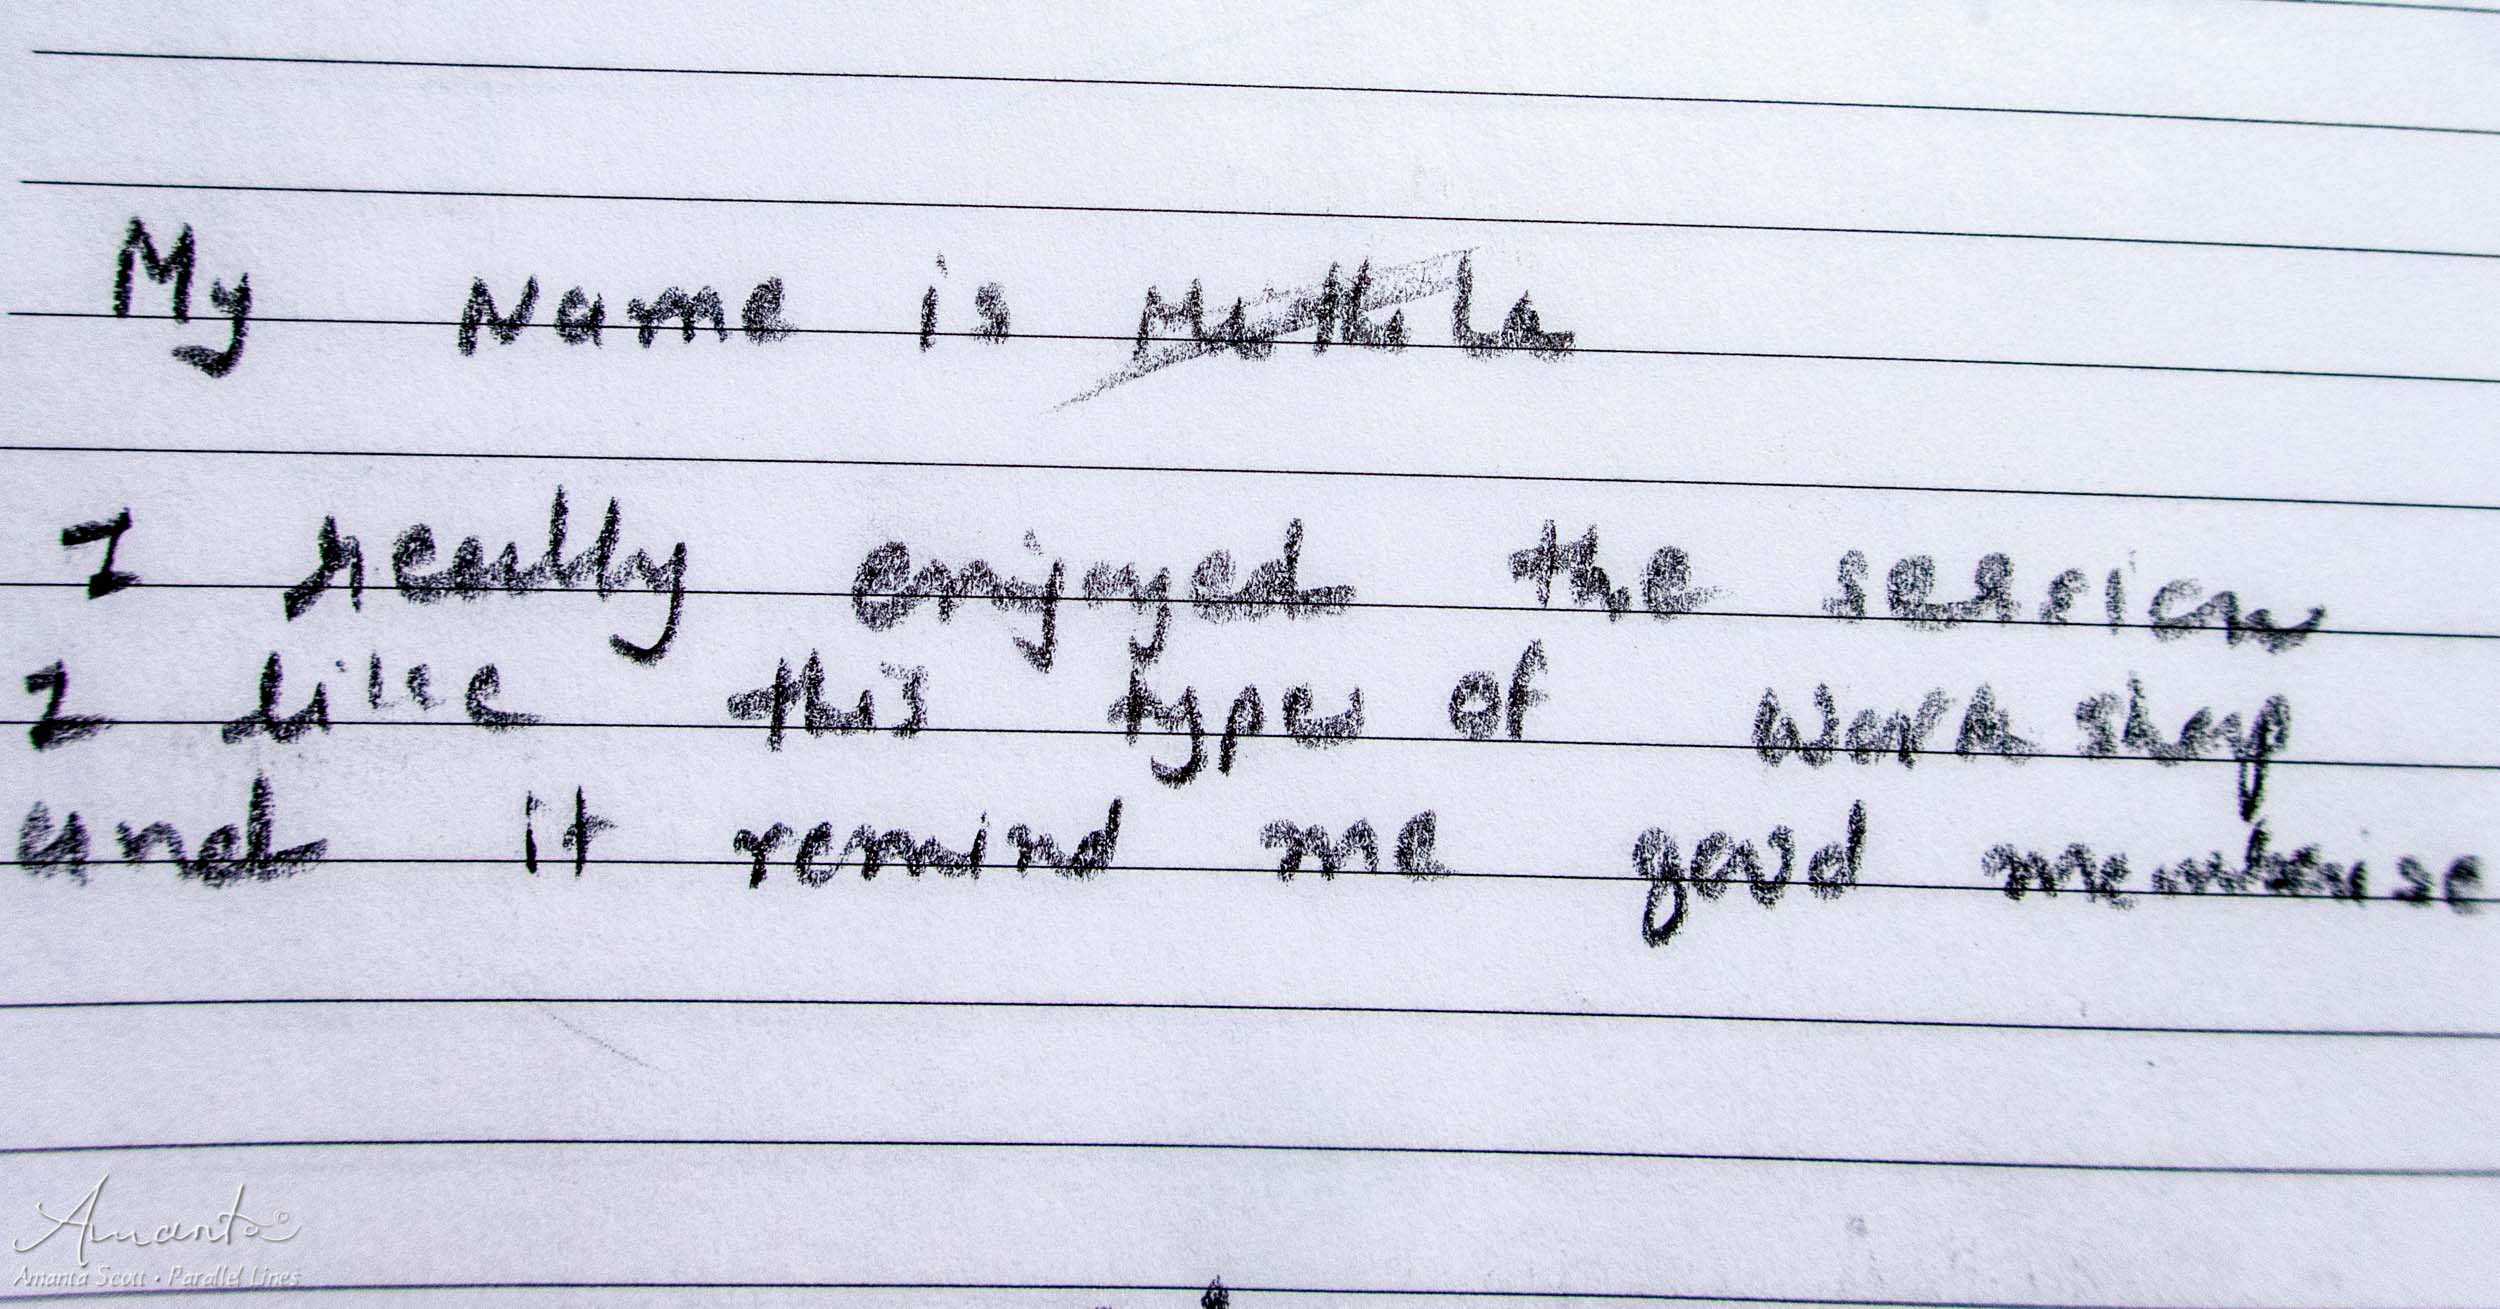 My Name is Mithila
I really enjoyed the session
I like this types of work shop
and it remind me good
Amanta©
Amanta Scott • Parallel Lines